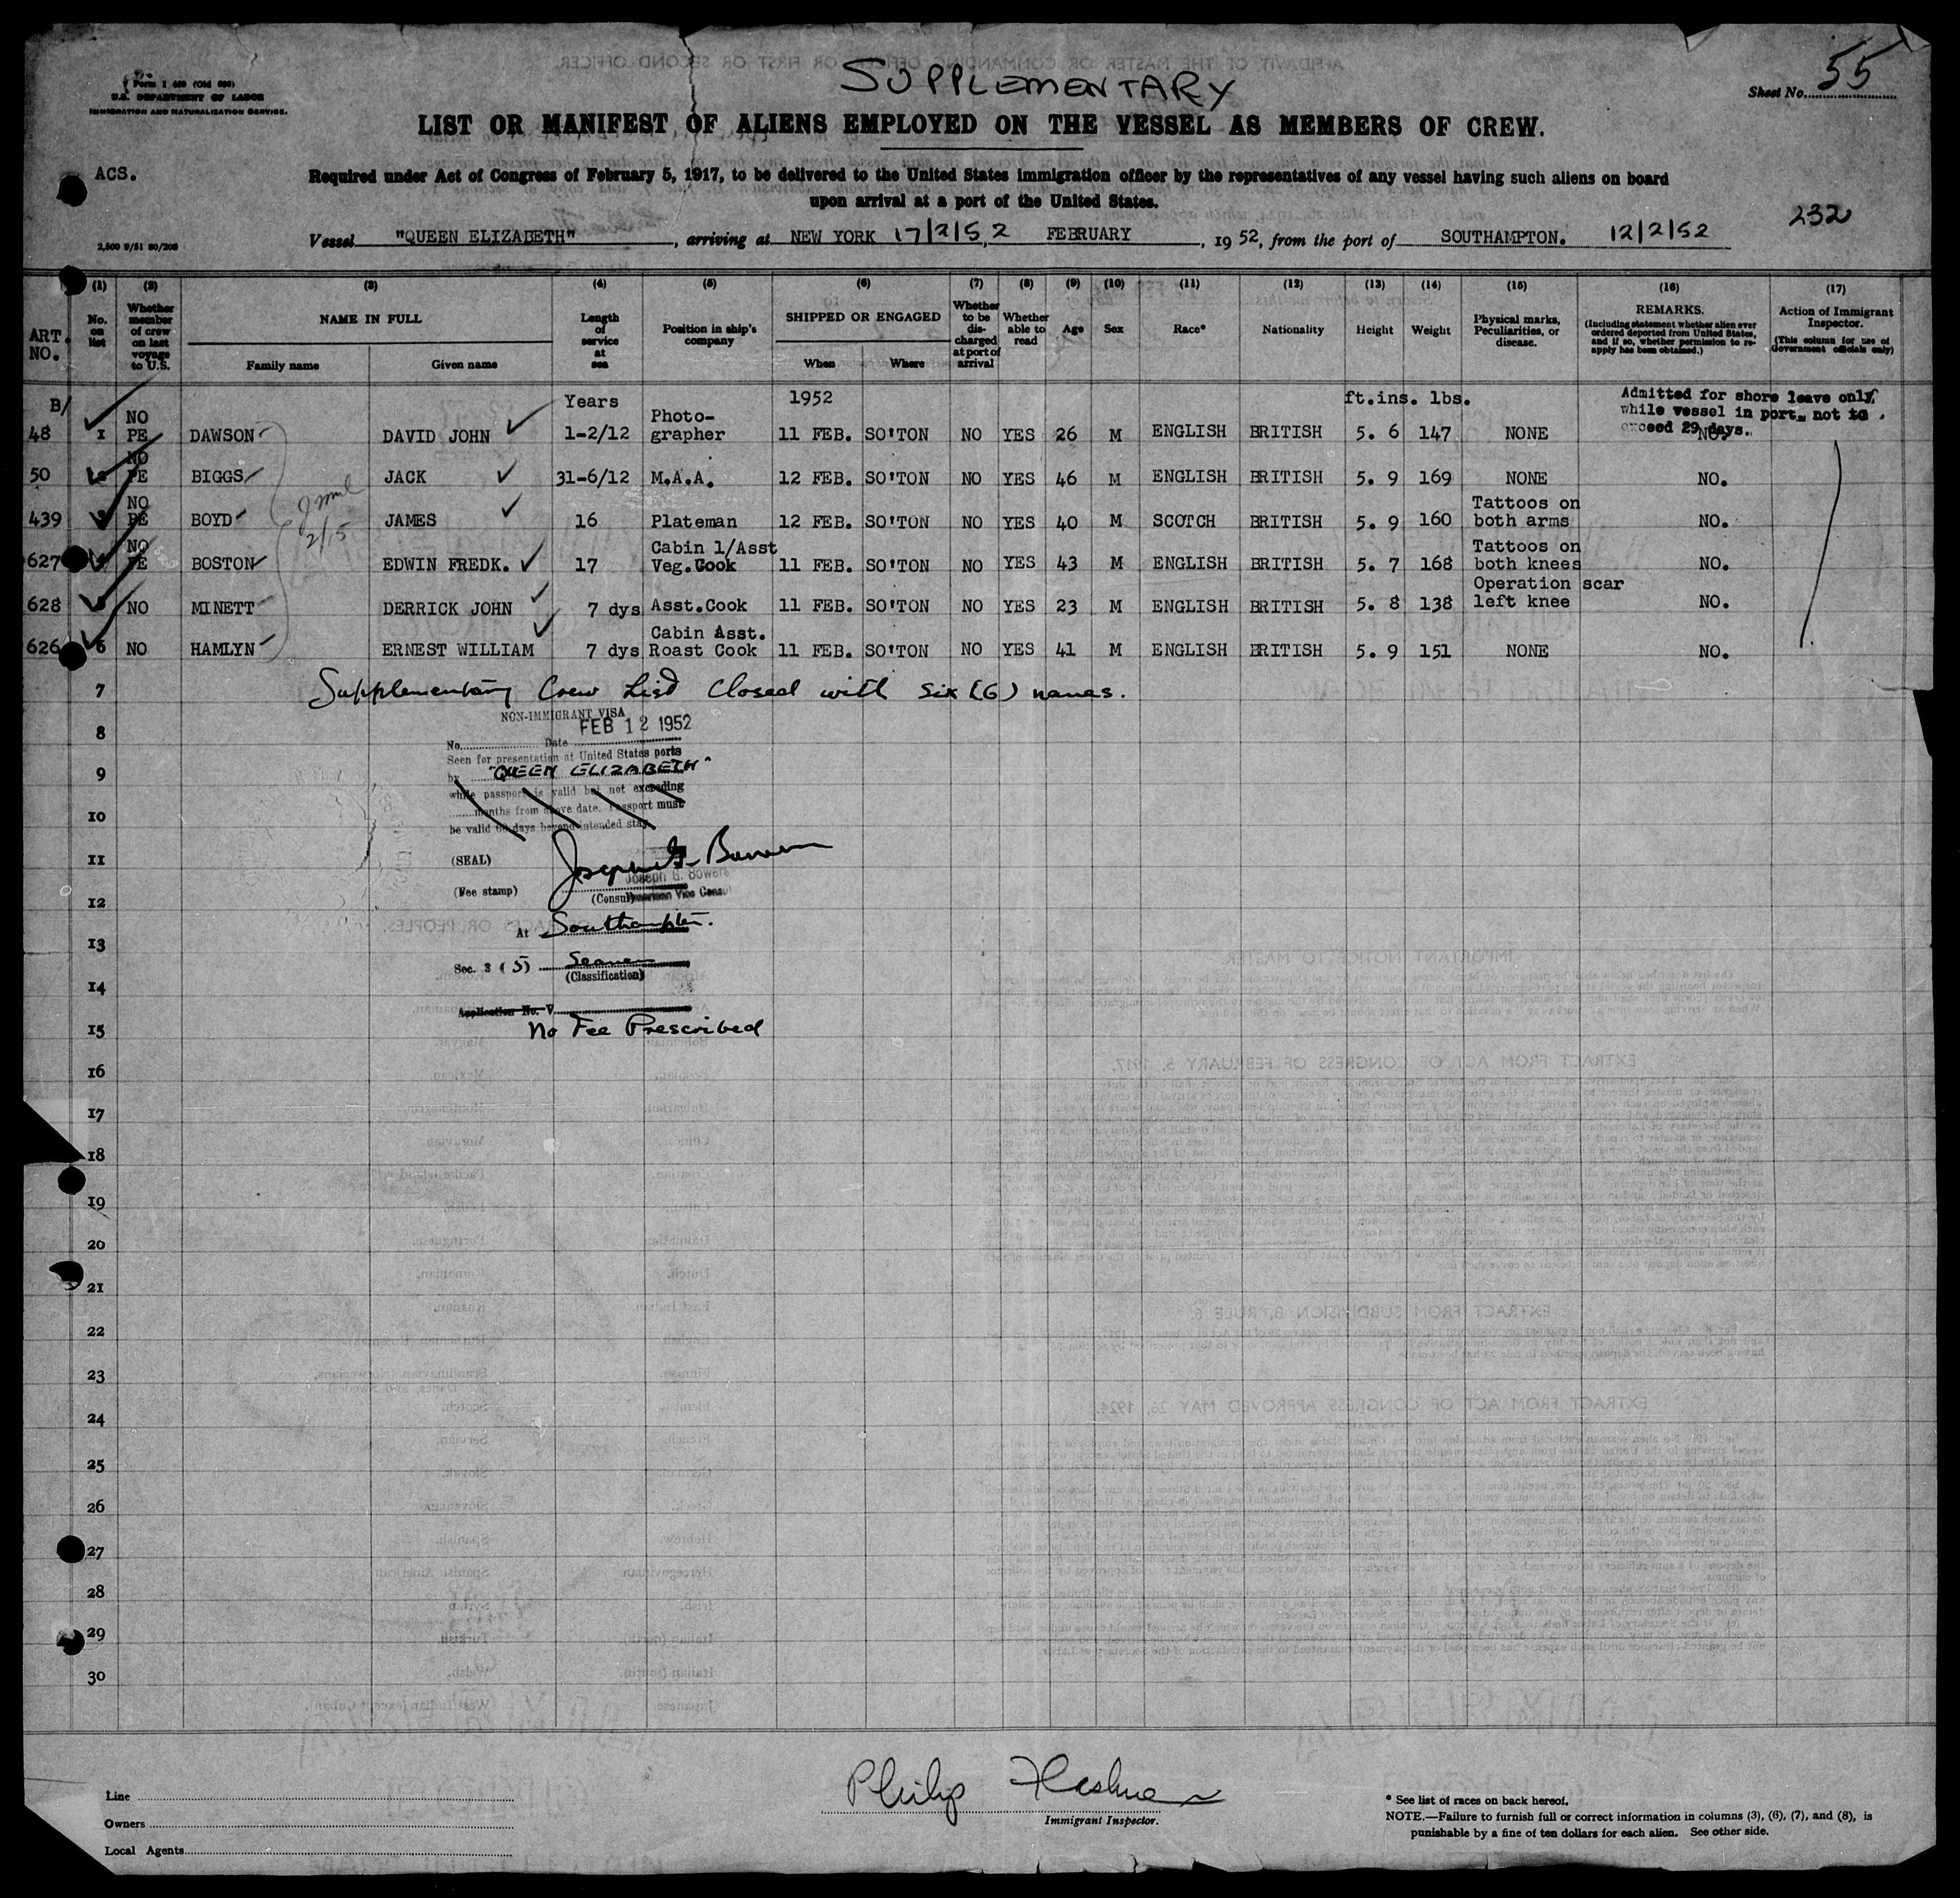 SUPPLEMENTARY
Form I 480 (Old 689)
U.S. DEPARTMENT OF LABOR
IMMIGRATION AND NATURALIZATION SERVICE.
Sheet No. 55
LIST OR MANIFEST OF ALIENS EMPLOYED ON THE VESSEL AS MEMBERS OF CREW.
ACS.
Required under Act of Congress of February 5, 1917, to be delivered to the United States immigration officer by the representatives of any vessel having such aliens on board
upon arrival at a port of the United States.
232
2,500 9/51 80/208
Vessel "QUEEN ELIZABETH", arriving at NEW YORK 17/2/52 FEBRUARY, 19 52, from the port of SOUTHAMPTON. 12/2/52
ART. NO.
(1) No. on list
(2) Whether member of crew on last voyage to U.S.
(3) NAME IN FULL
Family name
Given name
(4) Length of service at sea
(5) Position in ship's company
(6) SHIPPED OR ENGAGED
When
Where
(7) Whether to be discharged at port of arrival
(8) Whether able to read
(9) Age
(10) Sex
(11) Race*
(12) Nationality
(13) Height
(14) Weight
(15) Physical marks, Peculiarities, or disease.
(16) REMARKS.
(Including statement whether alien ever ordered deported from United States, and if so, whether permission to re-apply has been obtained.)
(17) Action of Immigrant Inspector.
(This column for use of Government officials only)
B/ Years 1952 ft.ins. lbs.
Admitted for shore leave only,
while vessel in port, not to
exceed 29 days.
48 1 NO PE DAWSON DAVID JOHN 1-2/12 Photo-grapher 11 FEB. SO'TON NO YES 26 M ENGLISH BRITISH 5. 6 147 NONE NO.
50 NO PE BIGGS JACK 31-6/12 M.A.A. 12 FEB. SO'TON NO YES 46 M ENGLISH BRITISH 5. 9 169 NONE NO.
439 3 NO PE BOYD JAMES 16 Plateman 12 FEB. SO'TON NO YES 40 M SCOTCH BRITISH 5. 9 160 Tattoos on both arms NO.
627 NO PE BOSTON EDWIN FREDK. 17 Cabin 1/Asst Veg.Cook 11 FEB. SO'TON NO YES 43 M ENGLISH BRITISH 5. 7 168 Tattoos on both knees NO.
628 NO MINETT DERRICK JOHN 7 dys Asst.Cook 11 FEB. SO'TON NO YES 23 M ENGLISH BRITISH 5. 8 138 Operation scar left knee NO.
626 6 NO HAMLYN ERNEST WILLIAM 7 dys Cabin Asst. Roast Cook 11 FEB. SO'TON NO YES 41 M ENGLISH BRITISH 5. 9 151 NONE NO.
2/15
7 Supplementary Crew List Closed with six (6) names.
NON-IMMIGRANT VISA
8 No. Date FEB 12 1952
Seen for presentation at United States ports
9 by "QUEEN ELIZABETH"
while passport is valid but not exceeding
10 months from above date. Passport must
be valid 60 days beyond intended stay
11 (SEAL)
Joseph G. Bowers
(Fee stamp)
12 (Consul) American Vice Consul
At Southampton.
13
Sec. 3 (5) Seamen
(Classification)
14
Application No. V
15 No Fee Prescribed
16
17
18
19
20
21
22
23
24
25
26
27
28
29
30
Line
Owners
Local Agents
Philip
Immigrant Inspector.
* See list of races on back hereof.
NOTE.—Failure to furnish full or correct information in columns (3), (6), (7), and (8), is
punishable by a fine of ten dollars for each alien. See other side.